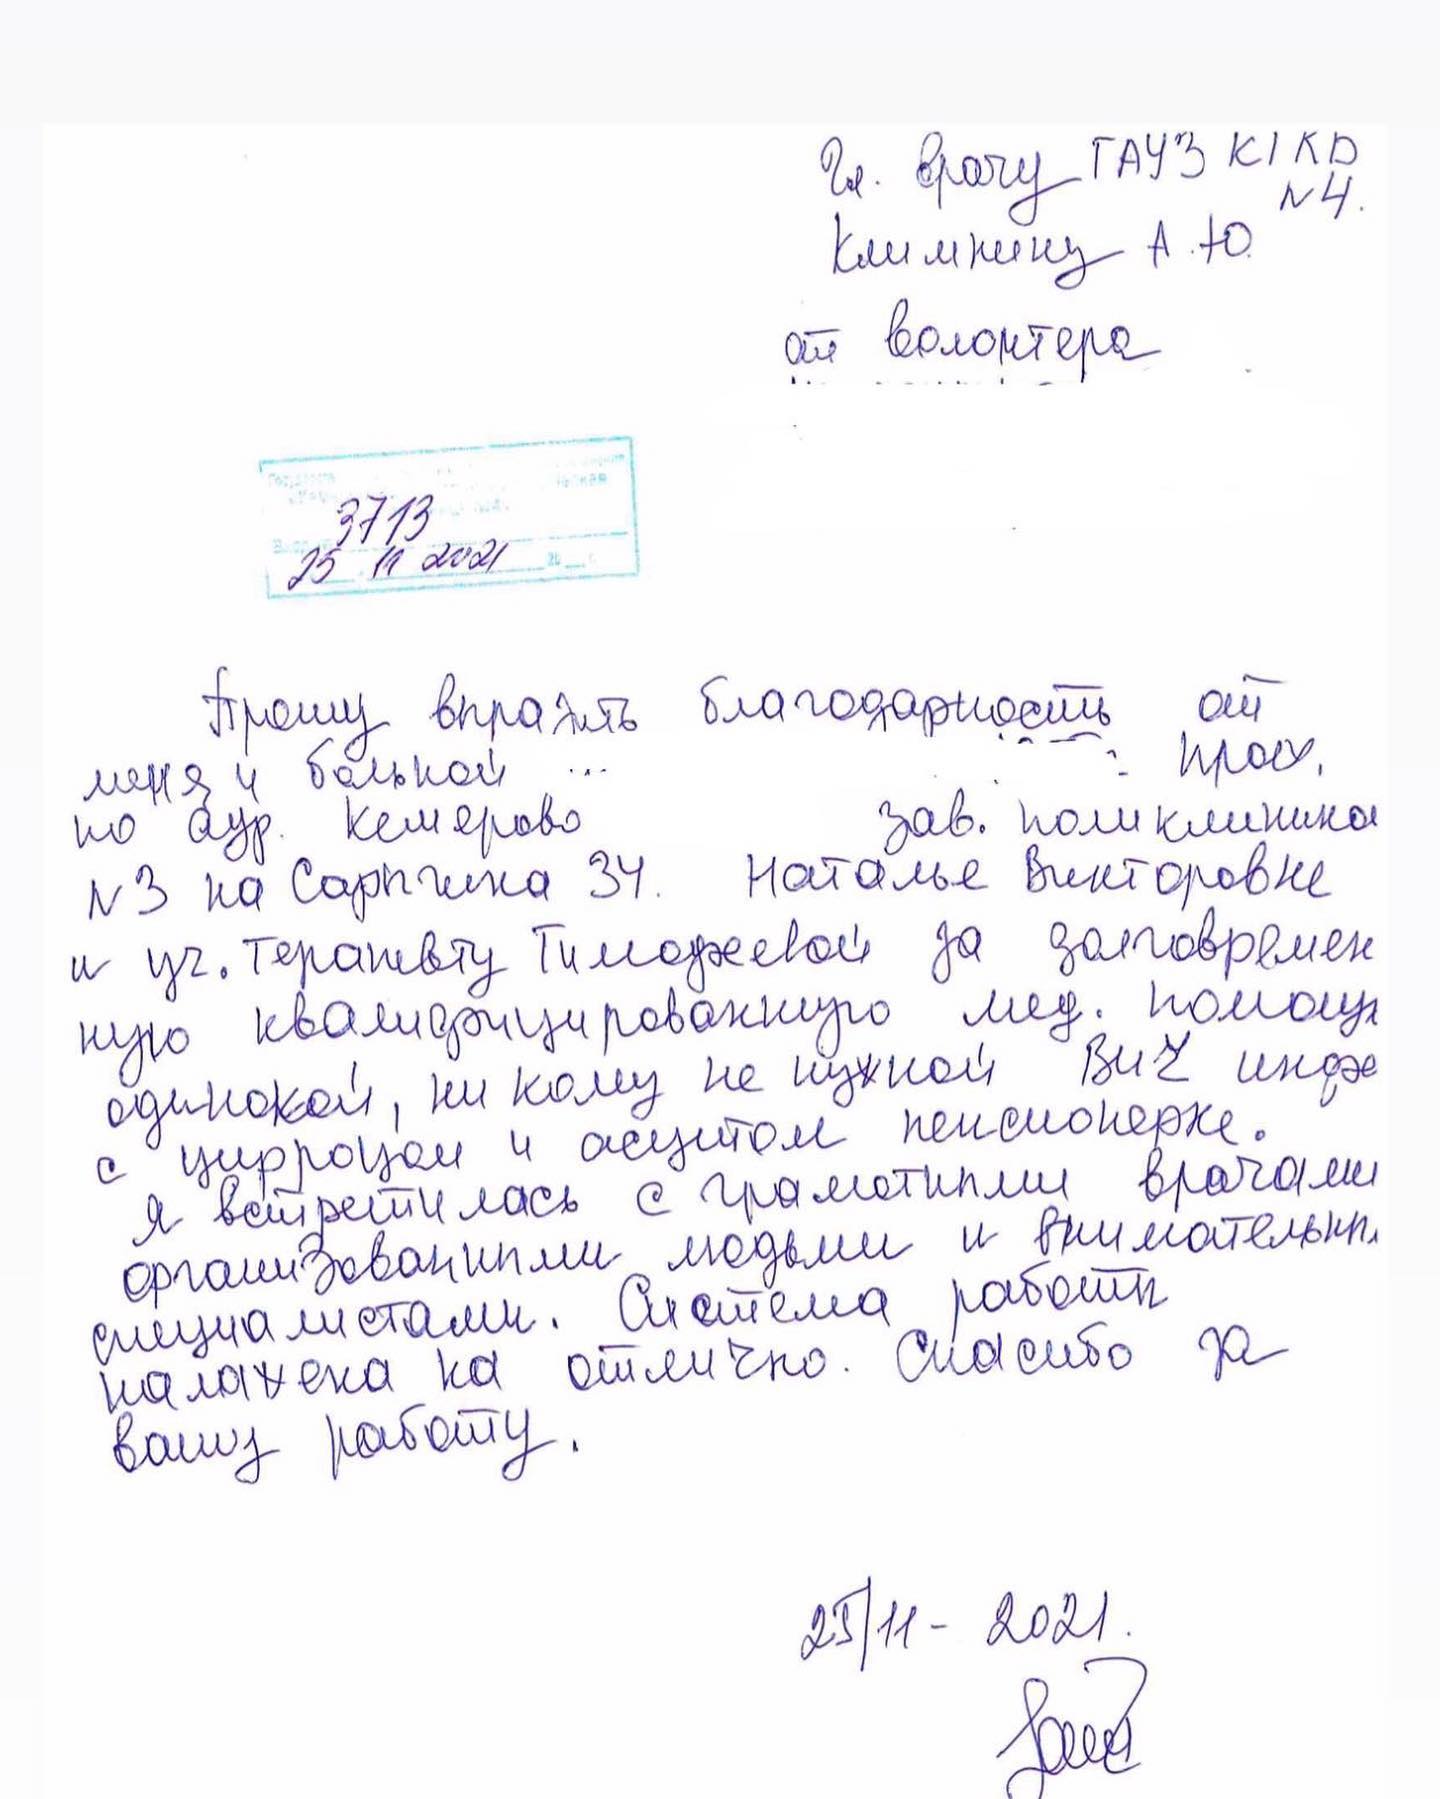 Гл. врачу ГАУЗ ККБ
N4.
Климкину А.Ю.
от волонтера
3713
25 11 2021
Прошу выразить благодарность от
меня и больной прож.
по адр. Кемерово зав. поликлиника
N3 на Сарыгина 34. Наталье Викторовне
и уч. терапевту Тимофеевой за долговремен
ную квалифицированную мед. помощь
одинокой, ни кому не нужной ВИЧ инф
с циррозом и асцитом пенсионерке.
Я встретилась с грамотными врачами
организованными людьми и внимательны
специалистами. Система работы
налажена на отлично. Спасибо за
вашу работу.
25/11 - 2021.